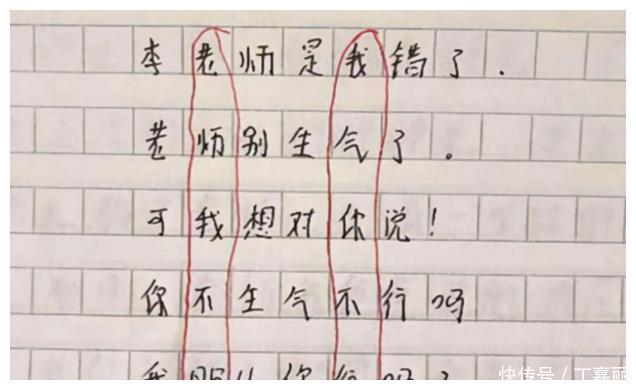 李老师是我错了.
老师别生气了。
可我想对你说!
你不生气不行吗
快传号/丁嘉丽